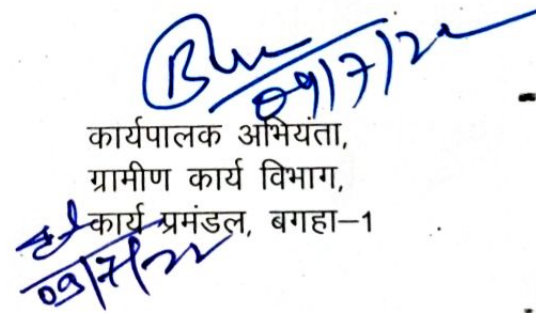 09/7/22
कार्यपालक अभियंता,
ग्रामीण कार्य विभाग,
कार्य प्रमंडल, बगहा–1
09/7/22